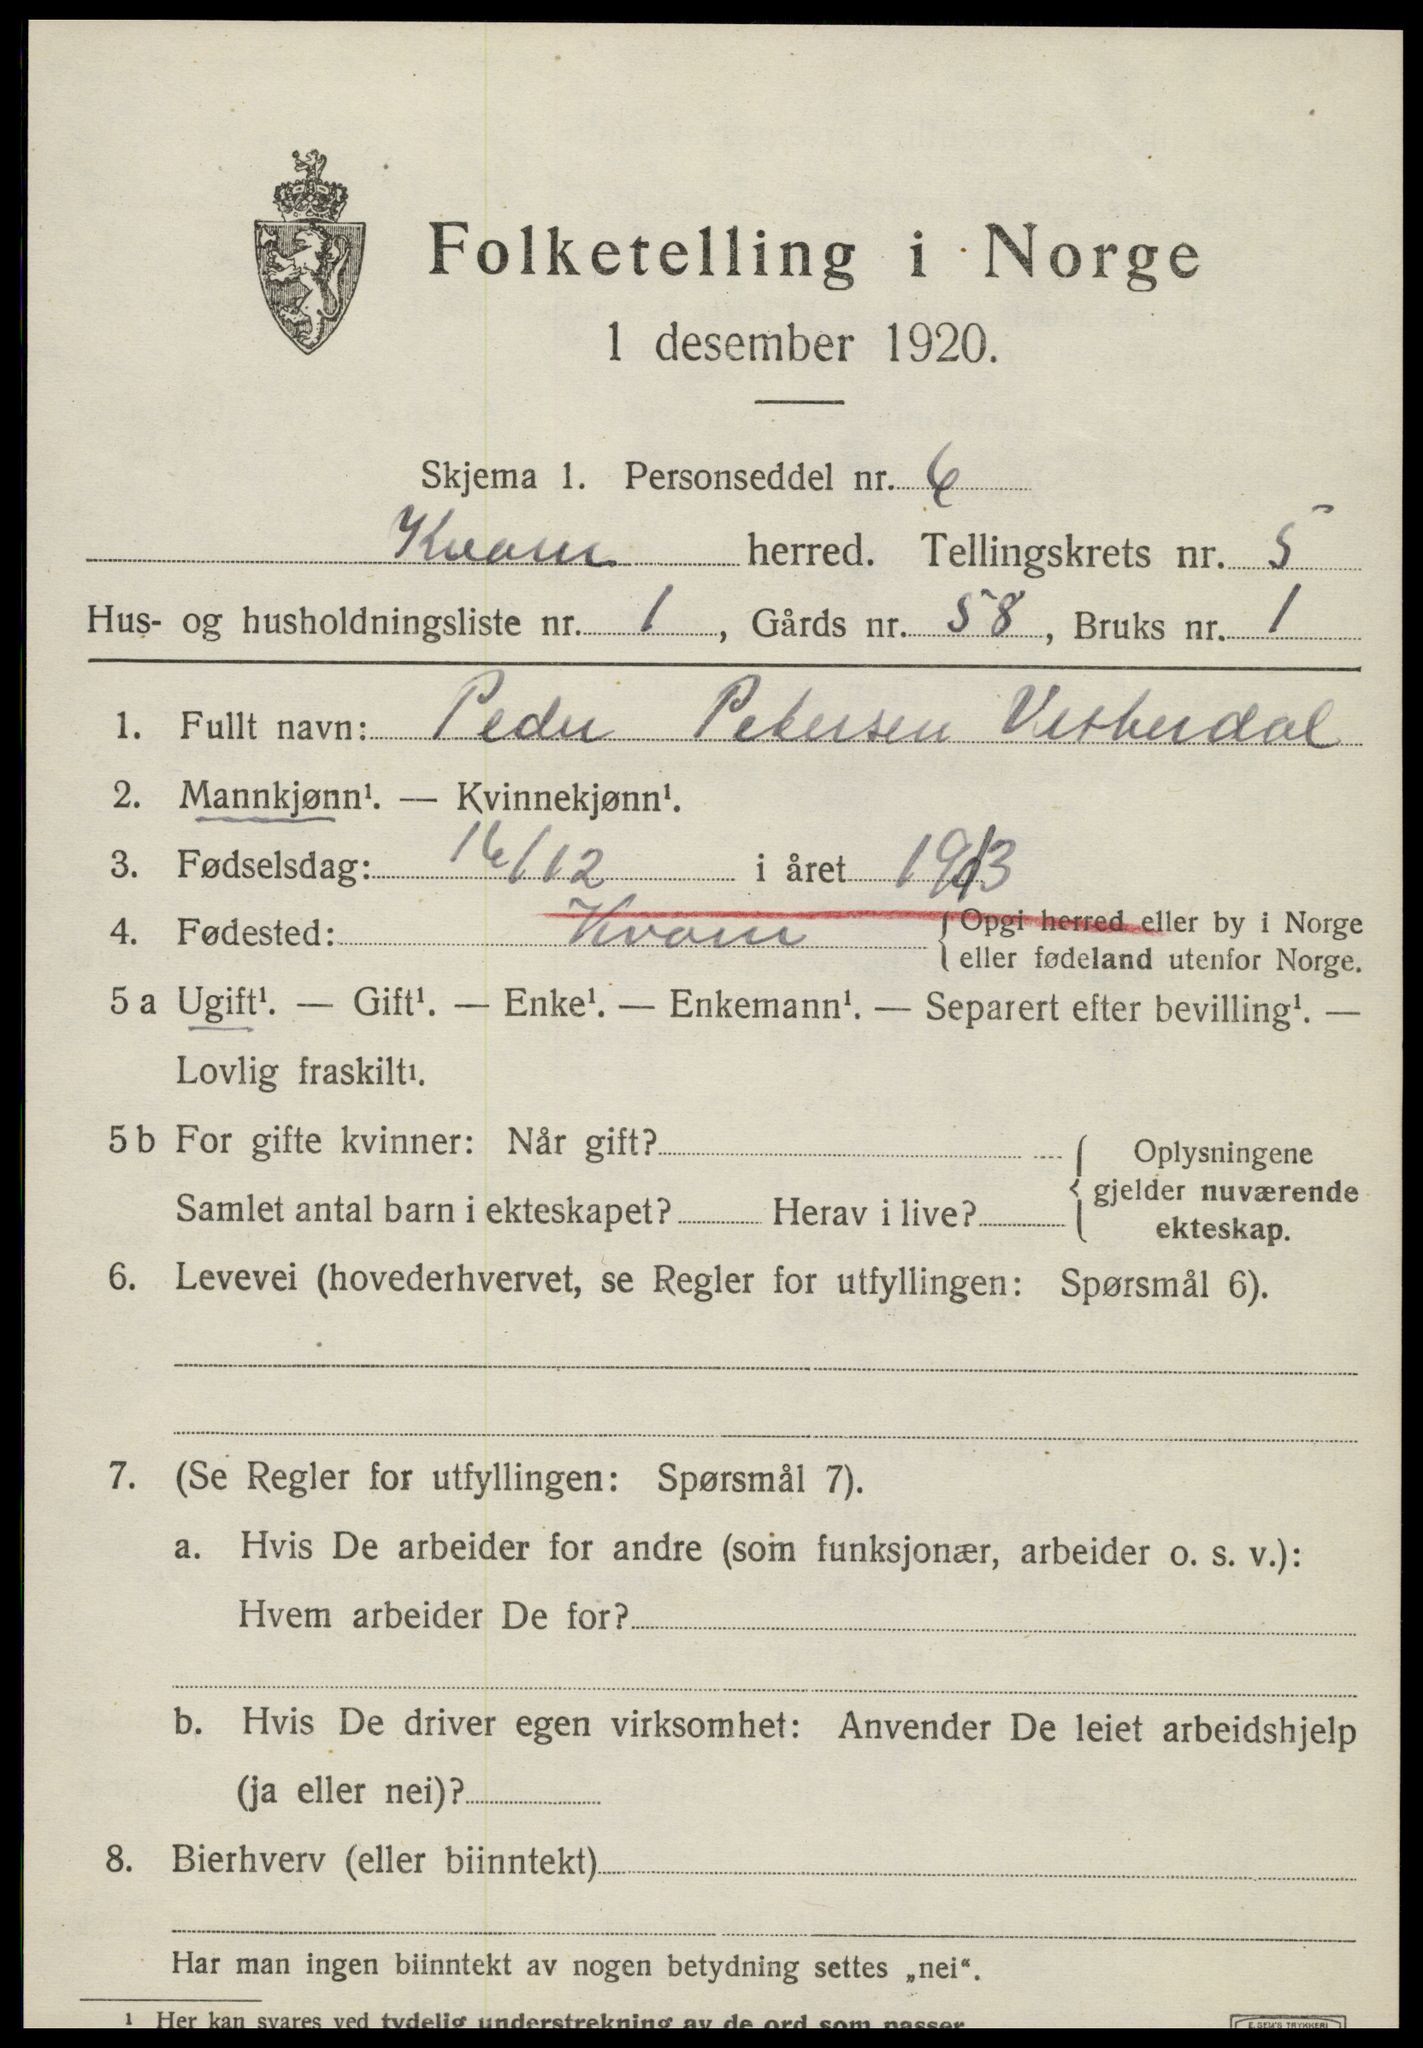 Folketelling i Norge
1 desember 1920.
Skjema 1. Personseddel nr. 6
Kvam herred. Tellingskrets nr. 5
Hus- og husholdningsliste nr. 1, Gårds nr. 58, Bruks nr. 1
1. Fullt navn: Peder Petersen Vesterdal
2. Mannkjønn¹. — Kvinnekjønn¹.
3. Fødselsdag: 16/12 i året 1913
4. Fødested: Kvam { Opgi herred eller by i Norge
eller fødeland utenfor Norge.
5 a Ugift¹. — Gift¹. — Enke¹. — Enkemann¹. — Separert efter bevilling¹. —
Lovlig fraskilt¹.
5 b For gifte kvinner: Når gift?
Samlet antal barn i ekteskapet? Herav i live?
{ Oplysningene
gjelder nuværende
ekteskap.
6. Levevei (hovederhvervet, se Regler for utfyllingen: Spørsmål 6).
7. (Se Regler for utfyllingen: Spørsmål 7).
a. Hvis De arbeider for andre (som funksjonær, arbeider o. s. v.):
Hvem arbeider De for?
b. Hvis De driver egen virksomhet: Anvender De leiet arbeidshjelp
(ja eller nei)?
8. Bierhverv (eller biinntekt)
Har man ingen biinntekt av nogen betydning settes „nei“.
¹ Her kan svares ved tydelig understrekning av de ord som passer.
E. SEM'S TRYKKERI